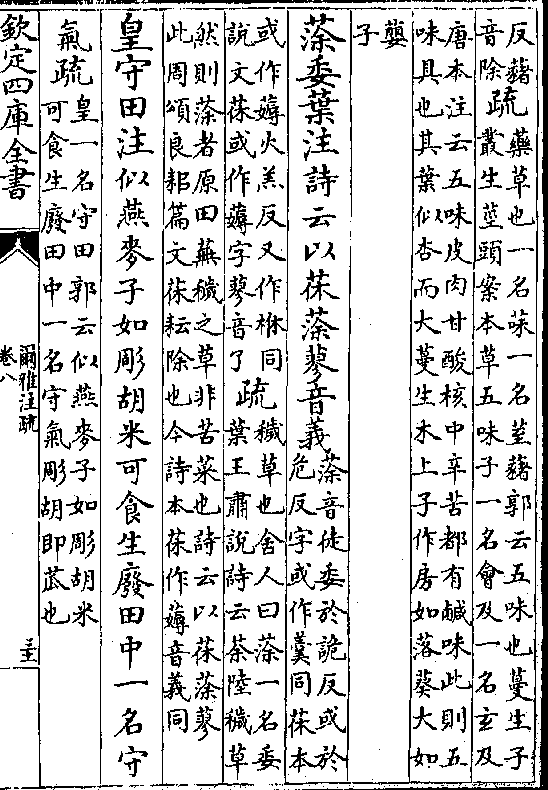 反藸
音除
疏
藥草也一名菋一名荎藸郭云五味也蔓生子
叢生莖頭案本草五味子一名會及一名玄及
唐本注云五味皮肉甘酸核中辛苦都有鹹味此則五
味具也其葉似杏而大蔓生木上子作房如落葵大如
蘡
子
蒤委葉注詩云以茠蒤蓼音義
蒤音徒委於詭反或於
危反字或作萎同茠本
或作薅火羔反又作㭒同
說文茠或作薅字蓼音了
疏
穢草也舍人曰蒤一名委
葉王肅說詩云荼陸穢草
然則蒤者原田蕪穢之草非苦菜也詩云以茠蒤蓼
此周頌良耜篇文茠耘除也今詩本茠作薅音義同
皇守田注似燕麥子如彫胡米可食生廢田中一名守
氣疏
皇一名守田郭云似燕麥子如彫胡米
可食生廢田中一名守氣彫胡即苽也
欽定四庫全書
爾雅注疏
卷八